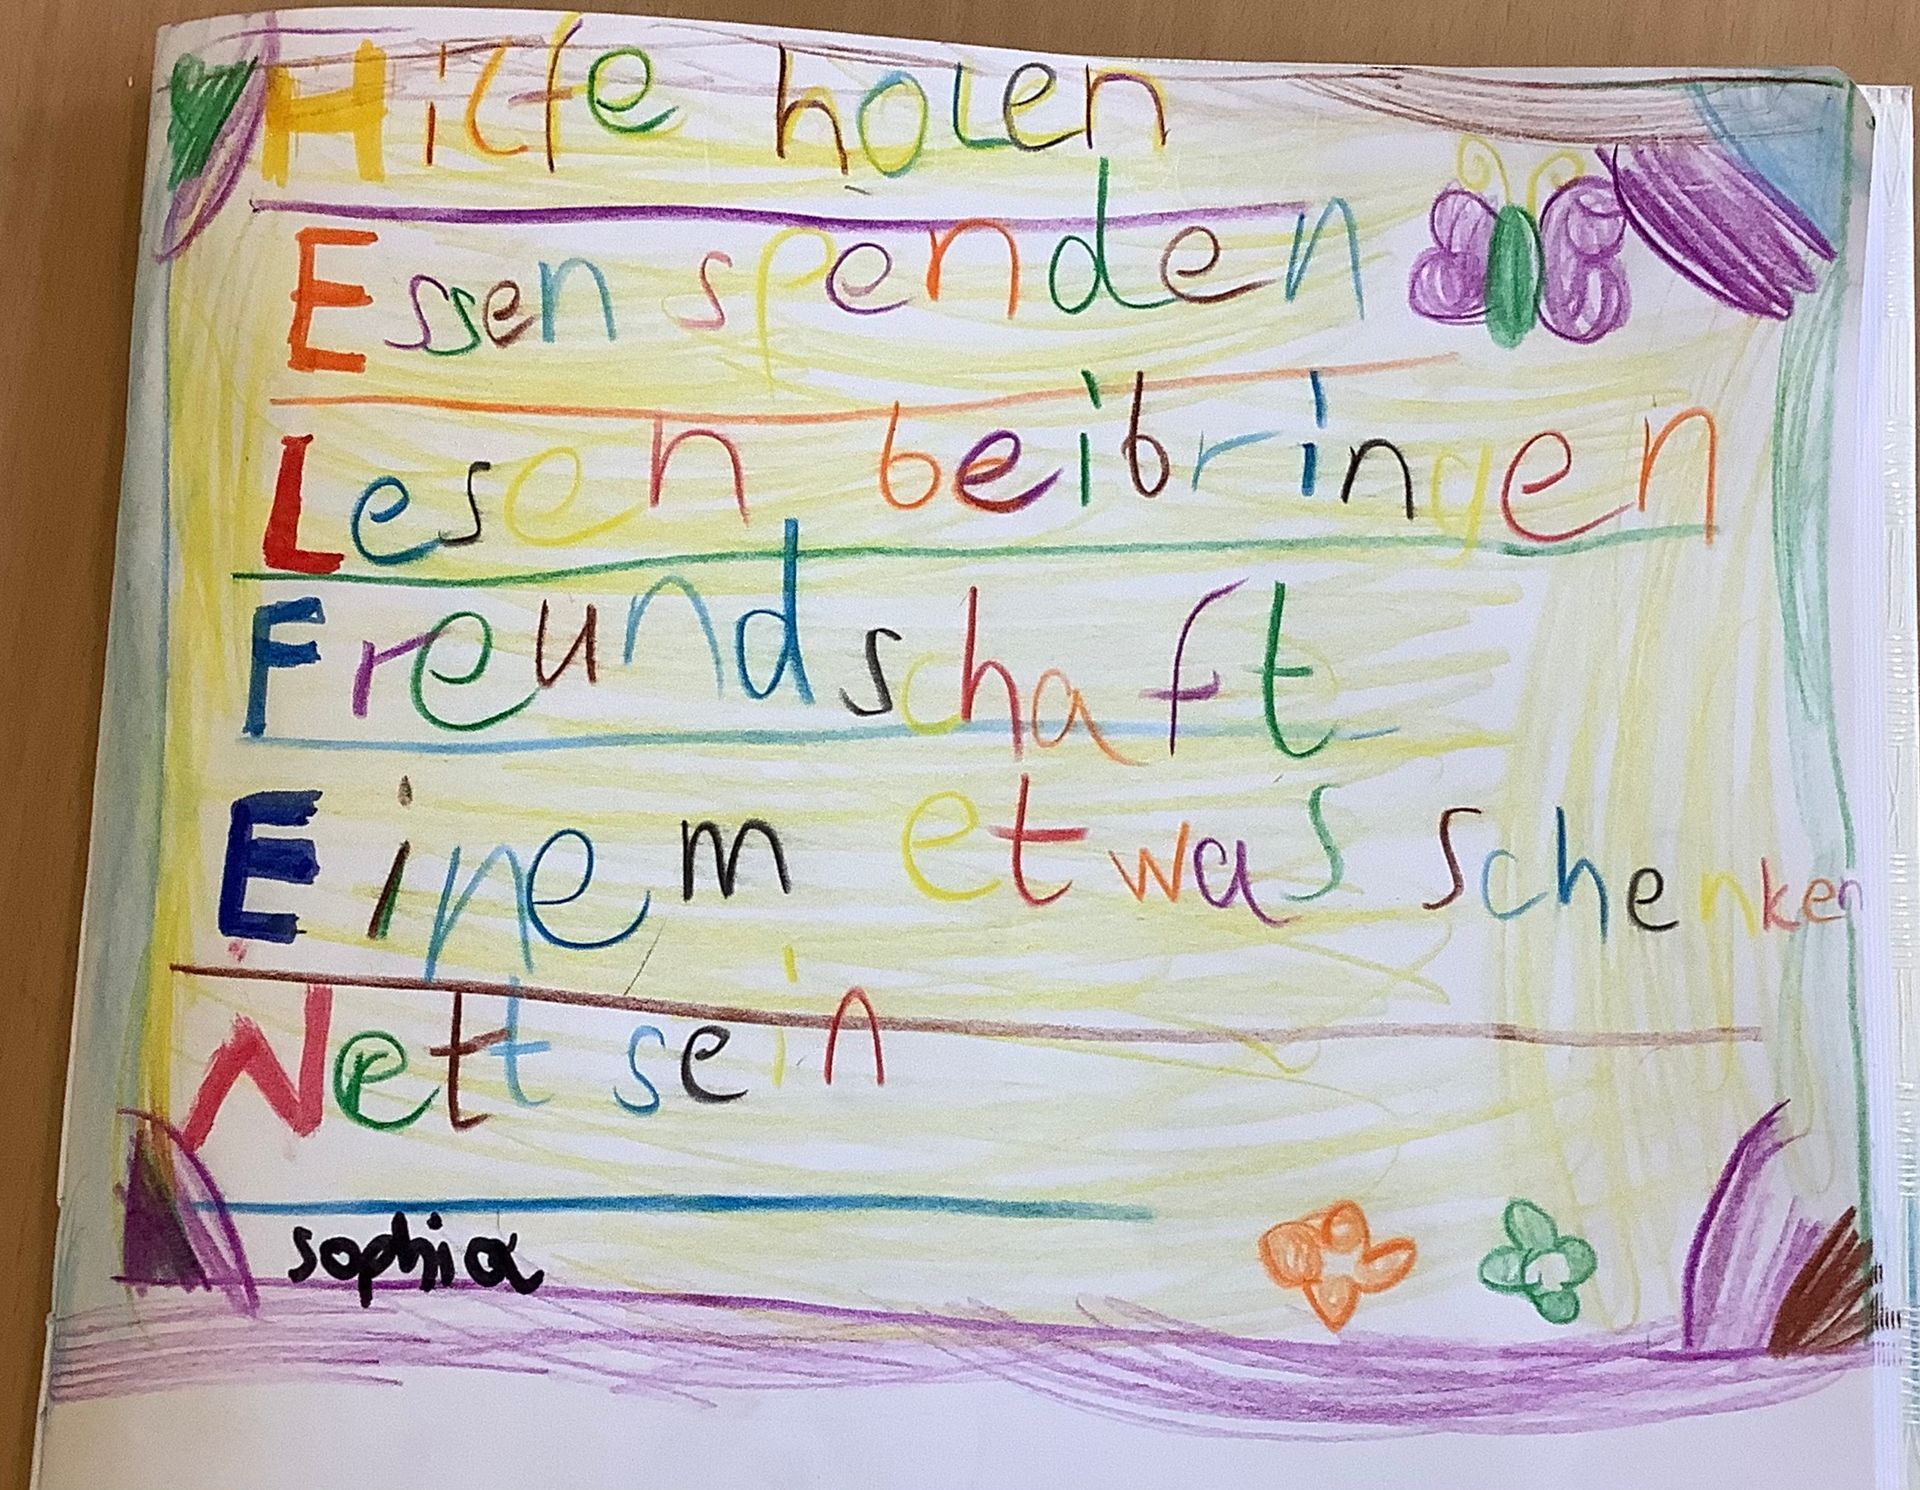 Hilfe holen
Essen spenden
Lesen beibringen
Freundschaft
Einem etwas schenken
Nett sein
sophia